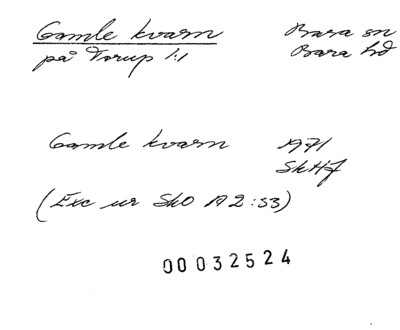 Gamle kvarn Bara sn
på Torup 1:1 Bara hd
Gamle kvarn 1971
SkHf
(Exc ur SkO A2:53)
00032524